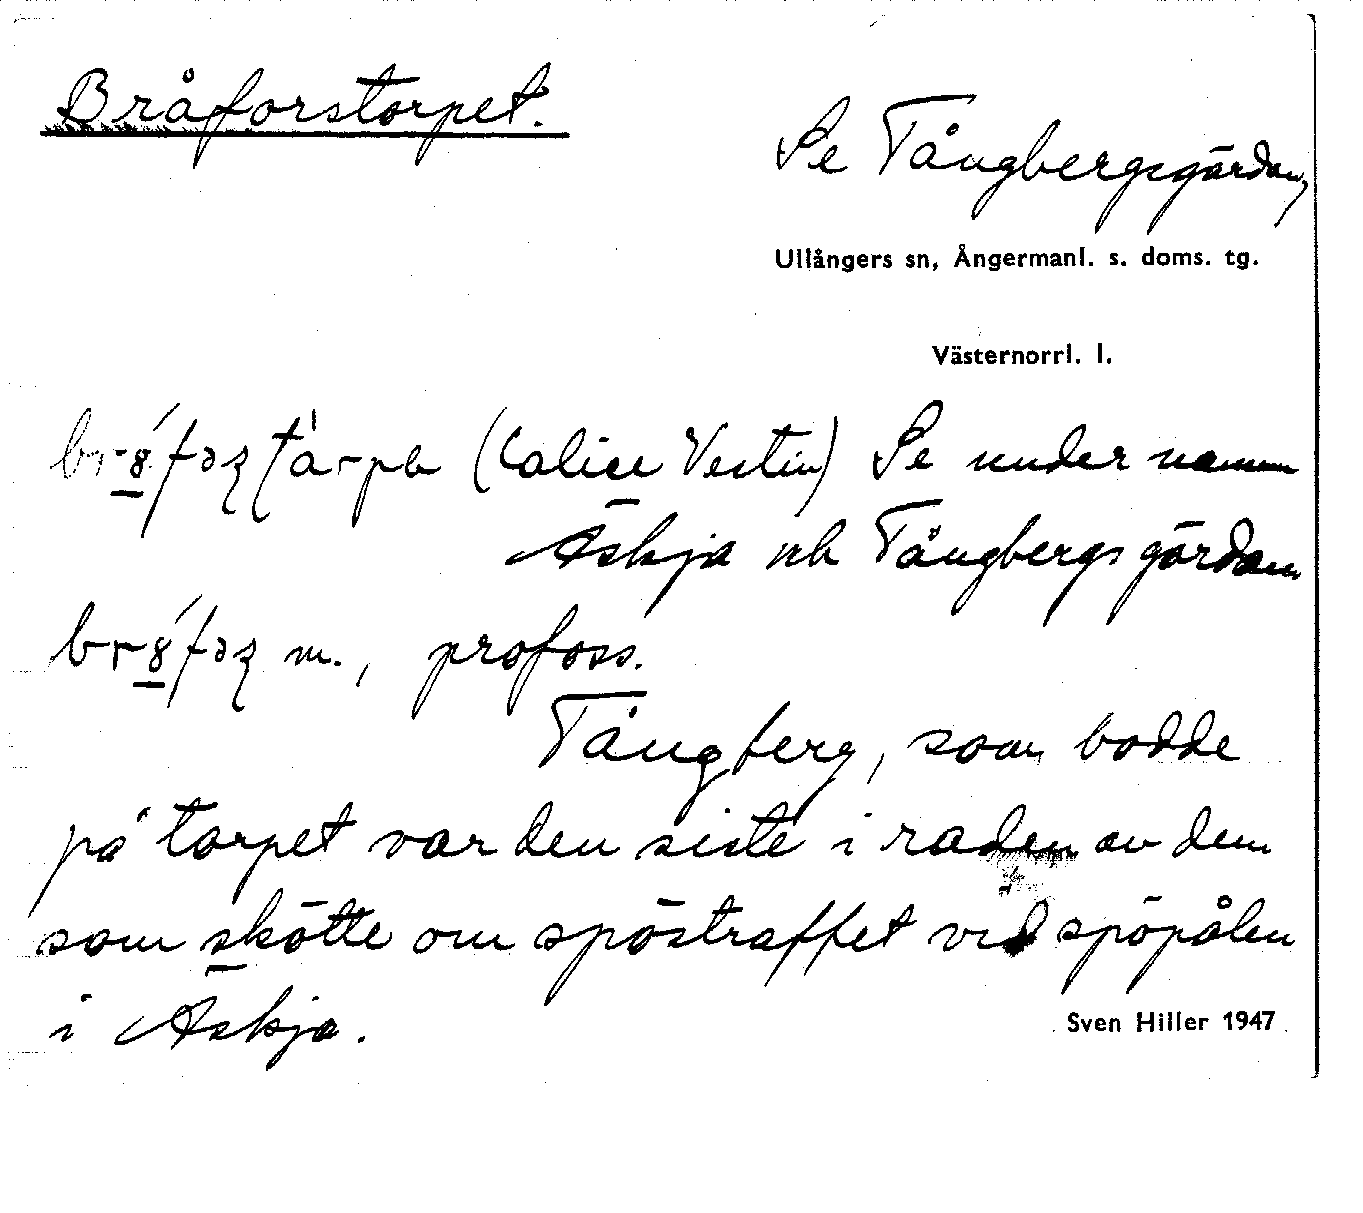 Bråforstorpet.
Se Tångbergsgärdan,
Ullångers sn, Ångermanl. s. doms. tg.
Västernorrl. l.
(Calice Vestin) Se under namn
Äskja och Tångbergsgärdan
m., profoss.
Tångberg, som bodde
på torpet var den siste i raden av dem
som skötte om spöstraffet vid spöpålen
i Äskja.
Sven Hiller 1947